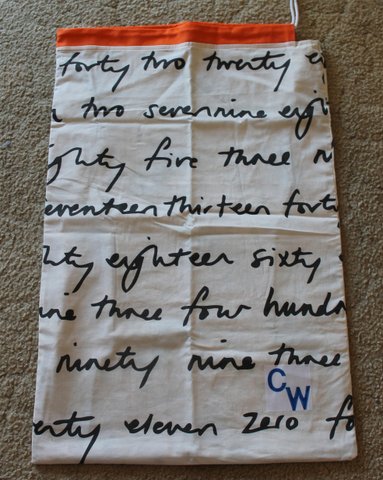 forty two twenty e
two sevennine eigh
ighty five three n
eventeen thirteen forty
hty eighteen sixty
ine three four hundr
ninety nine three
CW
enty eleven zero fo